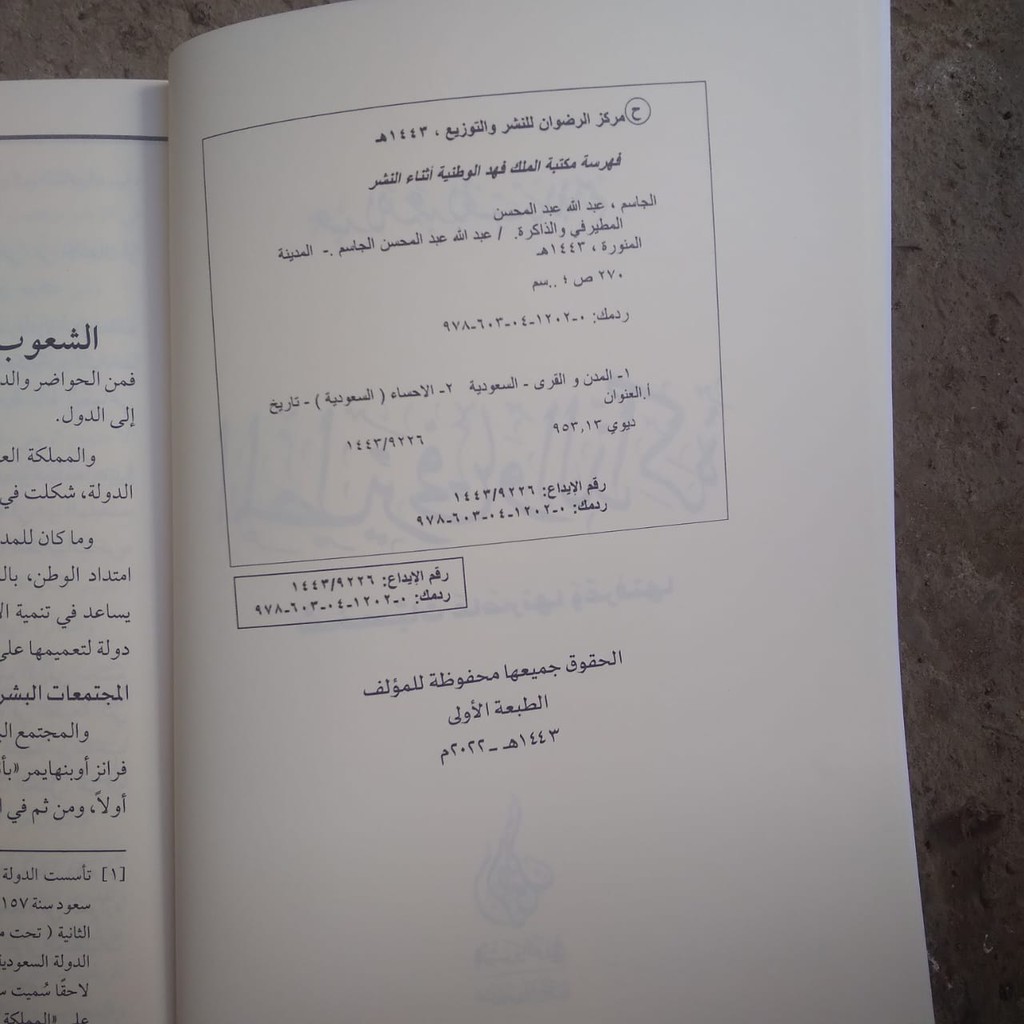 ح مركز الرضوان للنشر والتوزيع ، ١٤٤٣هـ
فهرسة مكتبة الملك فهد الوطنية أثناء النشر
الجاسم ، عبد الله عبد المحسن
المطيرفي والذاكرة. / عبد الله عبد المحسن الجاسم .- المدينة
المنورة ، ١٤٤٣هـ
٢٧٠ ص ؛ ..سم
ردمك: ٠-١٢٠٢-٠٤-٦٠٣-٩٧٨
١- المدن و القرى - السعودية ٢- الاحساء ( السعودية ) - تاريخ
أ.العنوان
ديوي ٩٥٣,١٣ ١٤٤٣/٩٢٢٦
رقم الإيداع: ١٤٤٣/٩٢٢٦
ردمك: ٠-١٢٠٢-٠٤-٦٠٣-٩٧٨
رقم الإيداع: ١٤٤٣/٩٢٢٦
ردمك: ٠-١٢٠٢-٠٤-٦٠٣-٩٧٨
الحقوق جميعها محفوظة للمؤلف
الطبعة الأولى
١٤٤٣هـ - ٢٠٢٢م
الشعوب
فمن الحواضر
إلى الدول.
والمملكة
الدولة، شكلت في
وما كان
امتداد الوطن،
يساعد في تنمية
دولة لتعميمها على
المجتمعات
والمجتمع
فرانز أوبنهايمر
أولاً، ومن ثم في
[١] تأسست الدولة
سعود سنة
الثانية ( تحت
الدولة
لاحقًا سُميت
على «المملكة